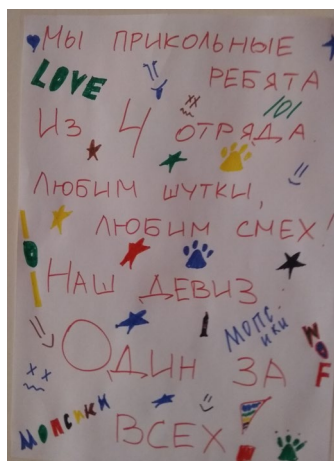 Мы прикольные
LOVE
ребята
101
Из 4 отряда.
Любим шутки,
Любим смех!
Наш девиз:
Мопсики
Один за
WOF
Мопсики
всех